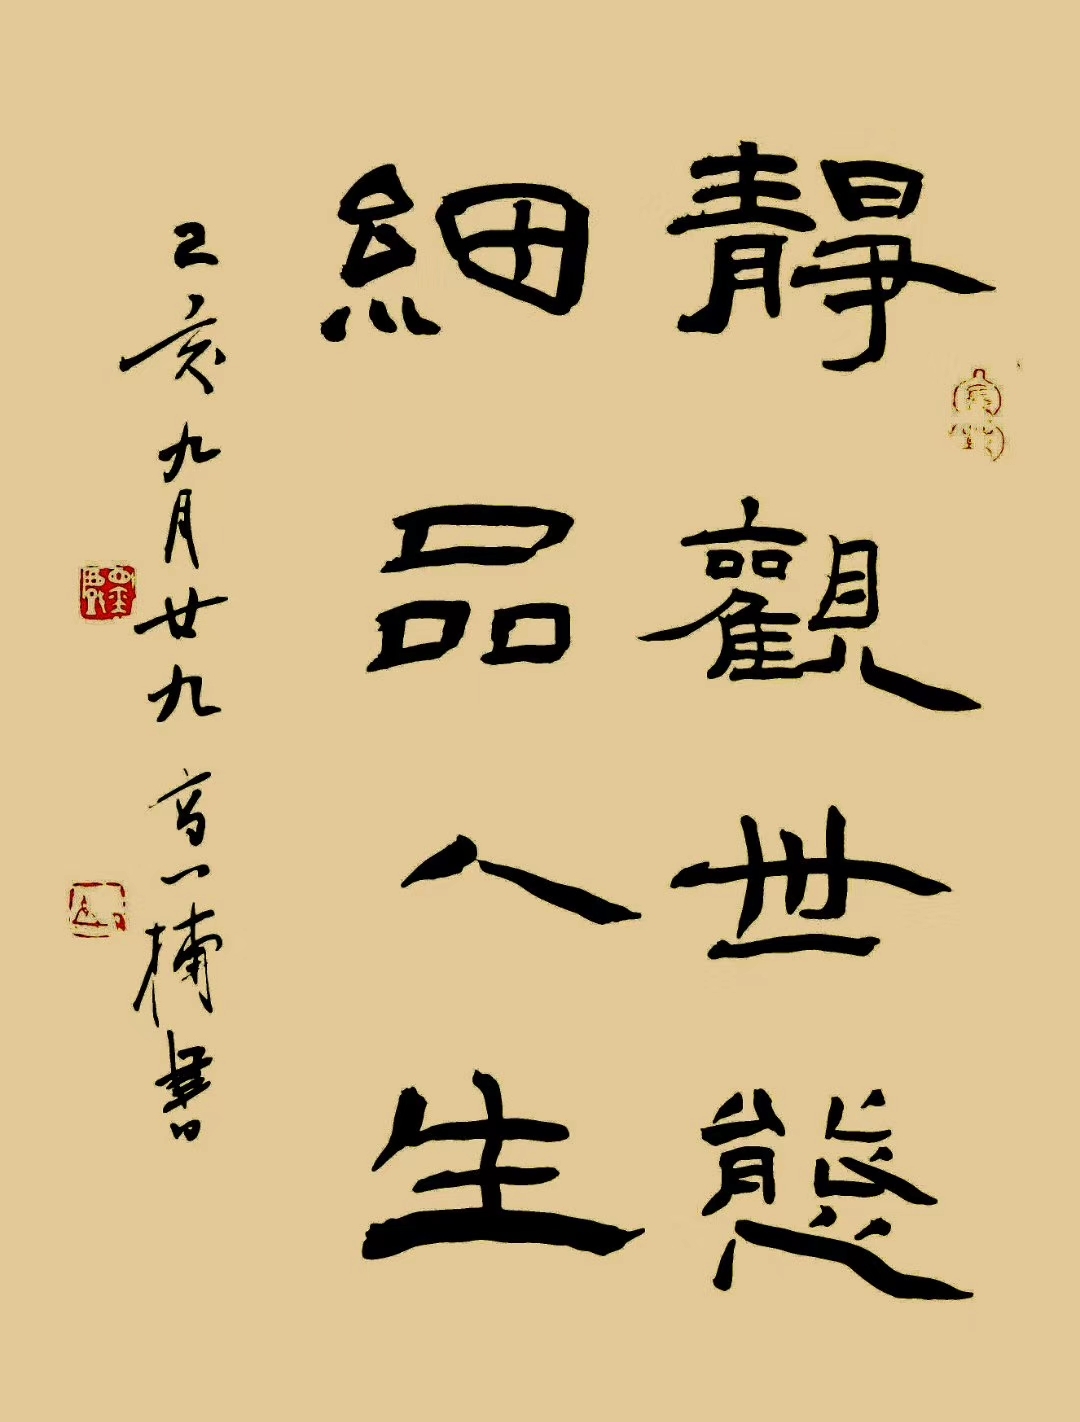 靜觀世態
細品人生
乙亥九月廿九 高一楠書